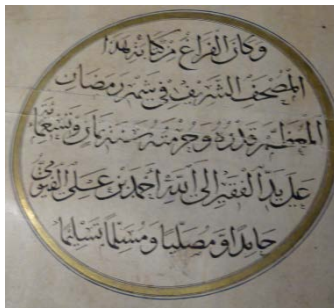 وكان الفراغ من كتابة هذا
المصحف الشريف في شهر رمضان
المعظم قدره وحرمته سنة ثمان وتسعمائة
على يد الفقير الى الله احمد بن علي الفيومي
حامدا ومصليا ومسلما تسليما